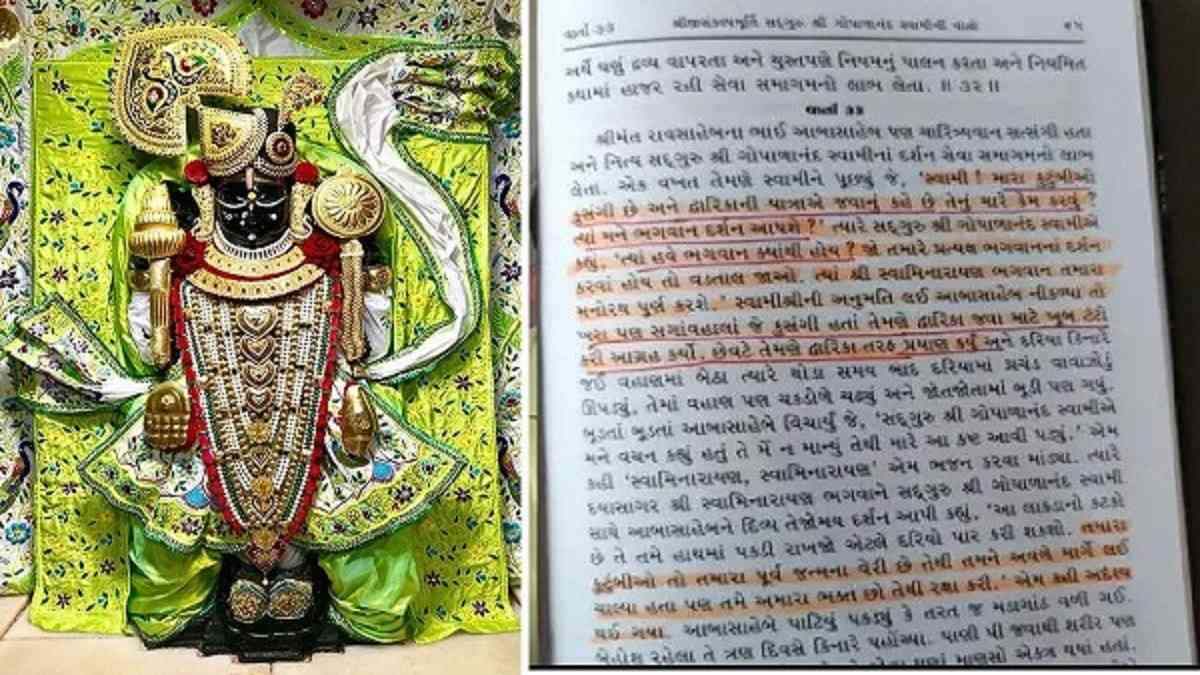 વાર્તા-૩૩ શ્રીજીસંકલ્પમૂર્તિ સદ્‌ગુરુ શ્રી ગોપાળાનંદ સ્વામીની વાતો ૬૫
અર્થે ઘણું દ્રવ્ય વાપરતા અને ચુસ્તપણે નિયમનું પાલન કરતા અને નિયમિત
કથામાં હાજર રહી સેવા સમાગમનો લાભ લેતા. ॥ ૩૨ ॥
વાર્તા ૩૩
શ્રીમંત રાવસાહેબના ભાઈ આબાસાહેબ પણ ચારિત્ર્યવાન સત્સંગી હતા
અને નિત્ય સદ્‌ગુરુ શ્રી ગોપાળાનંદ સ્વામીનાં દર્શન સેવા સમાગમનો લાભ
લેતા. એક વખત તેમણે સ્વામીને પૂછ્યું જે, ‘સ્વામી ! મારા કુટુંબીઓ
કુસંગી છે અને દ્વારિકાની યાત્રાએ જવાનું કહે છે તેનું મારે કેમ કરવું ?
ત્યાં મને ભગવાન દર્શન આપશે ?’ ત્યારે સદ્‌ગુરુ શ્રી ગોપાળાનંદ સ્વામીએ
કહ્યું, ‘ત્યાં હવે ભગવાન ક્યાંથી હોય ? જો તમારે પ્રત્યક્ષ ભગવાનનાં દર્શન
કરવાં હોય તો વડતાલ જાઓ. ત્યાં શ્રી સ્વામિનારાયણ ભગવાન તમારા
મનોરથ પુર્ણ કરશે.’ સ્વામીશ્રીની અનુમતિ લઈ આબાસાહેબ નીકળ્યા તો
ખરા પણ સગાંવહાલાં જે કુસંગી હતાં તેમણે દ્વારિકા જવા માટે ખૂબ ટંટો
કરી આગ્રહ કર્યો. છેવટે તેમણે દ્વારિકા તરફ પ્રયાણ કર્યું અને દરિયા કિનારે
જઈ વહાણમાં બેઠા ત્યારે થોડા સમય બાદ દરિયામાં પ્રચંડ વાવાઝોડું
ઊપડ્યું. તેમાં વહાણ પણ ચકડોળે ચઢ્યું અને જોતજોતામાં બૂડી પણ ગયું.
બૂડતાં બૂડતાં આબાસાહેબે વિચાર્યું જે, ‘સદ્‌ગુરુ શ્રી ગોપાળાનંદ સ્વામીએ
મને વચન કહ્યું હતું તે મેં ન માન્યું તેથી મારે આ કષ્ટ આવી પડ્યું.’ એમ
કહી ‘સ્વામિનારાયણ, સ્વામિનારાયણ’ એમ ભજન કરવા માંડ્યા. ત્યારે
દયાસાગર શ્રી સ્વામિનારાયણ ભગવાને સદ્‌ગુરુ શ્રી ગોપાળાનંદ સ્વામી
સાથે આબાસાહેબને દિવ્ય તેજોમય દર્શન આપી કહ્યું, ‘આ લાકડાનો કટકો
છે તે તમે હાથમાં પકડી રાખજો એટલે દરિયો પાર કરી શકશો. તમારા
કુટુંબીઓ તો તમારા પૂર્વ જન્મના વેરી છે તેથી તમને અવળે માર્ગે લઈ
ચાલ્યા હતા પણ તમે અમારા ભક્ત છો તેથી રક્ષા કરી.’ એમ કહી અદૃશ્ય
થઈ ગયા. આબાસાહેબે પાટિયું પકડ્યું કે તરત જ મડાગાંઠ વળી ગઈ.
બેહોશ રહેલા તે ત્રણ દિવસે કિનારે પહોંચ્યા. પાણી પી જવાથી શરીર પણ
ઘણાં માણસો એકત્ર થયાં હતાં.